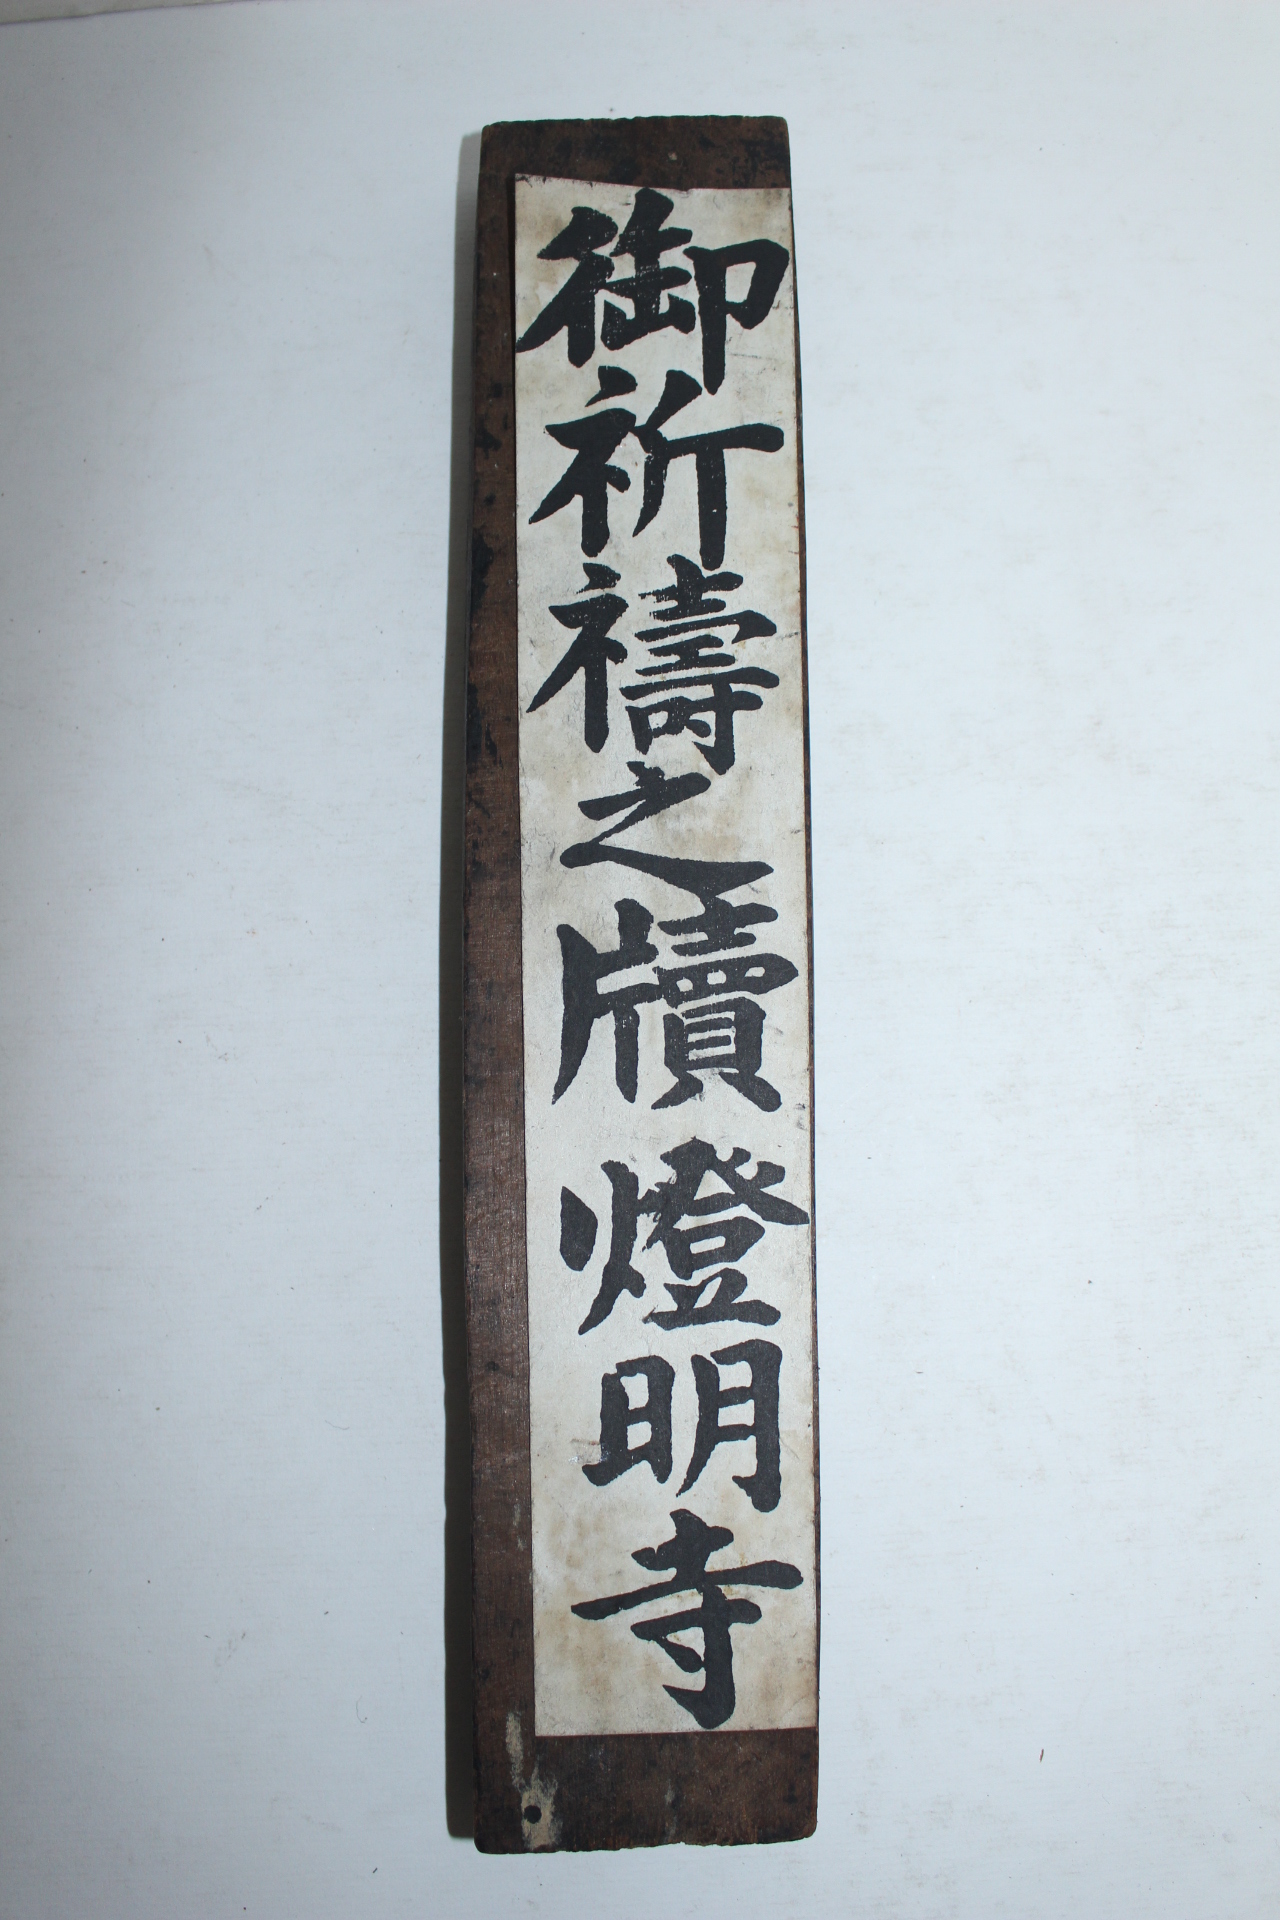 御祈禱之牘燈明寺